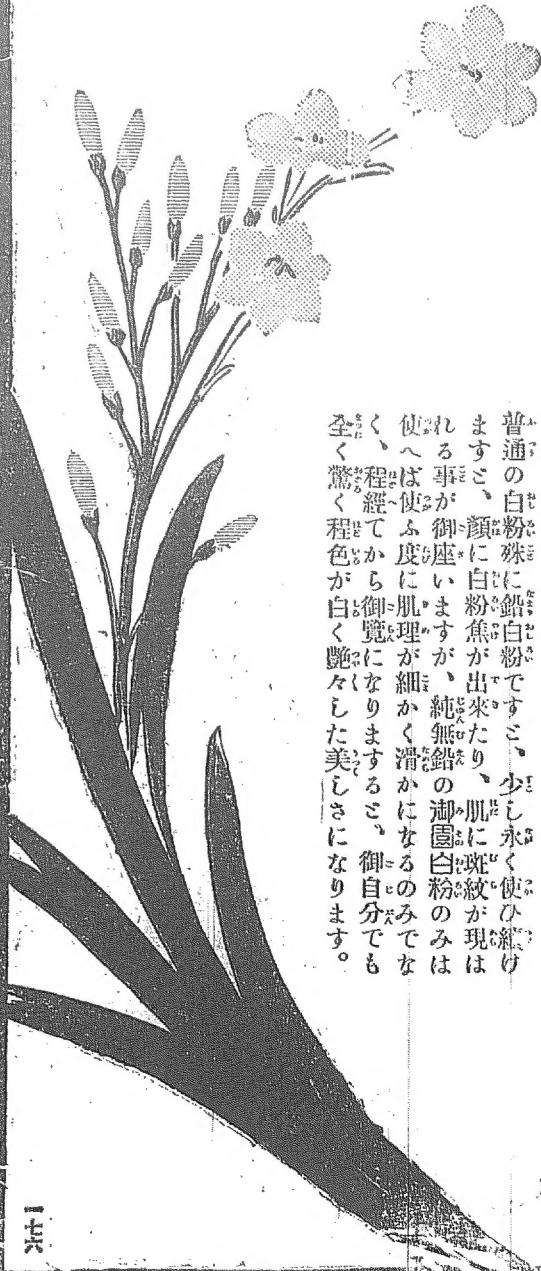 普通の白粉殊に鉛白粉ですと、少し永く使ひ續け
ますと、顏に白粉焦が出來たり、肌に斑紋が現は
れる事が御座いますが、純無鉛の御園白粉のみは
使へば使ふ度に肌理が細かく滑かになるのみでな
く、程經てから御覽になりますると、御自分でも
全く驚く程色が白く艷々した美しさになります。
一七六